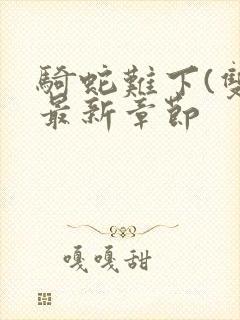 騎蛇難下(雙
最新章節
嘎嘎甜